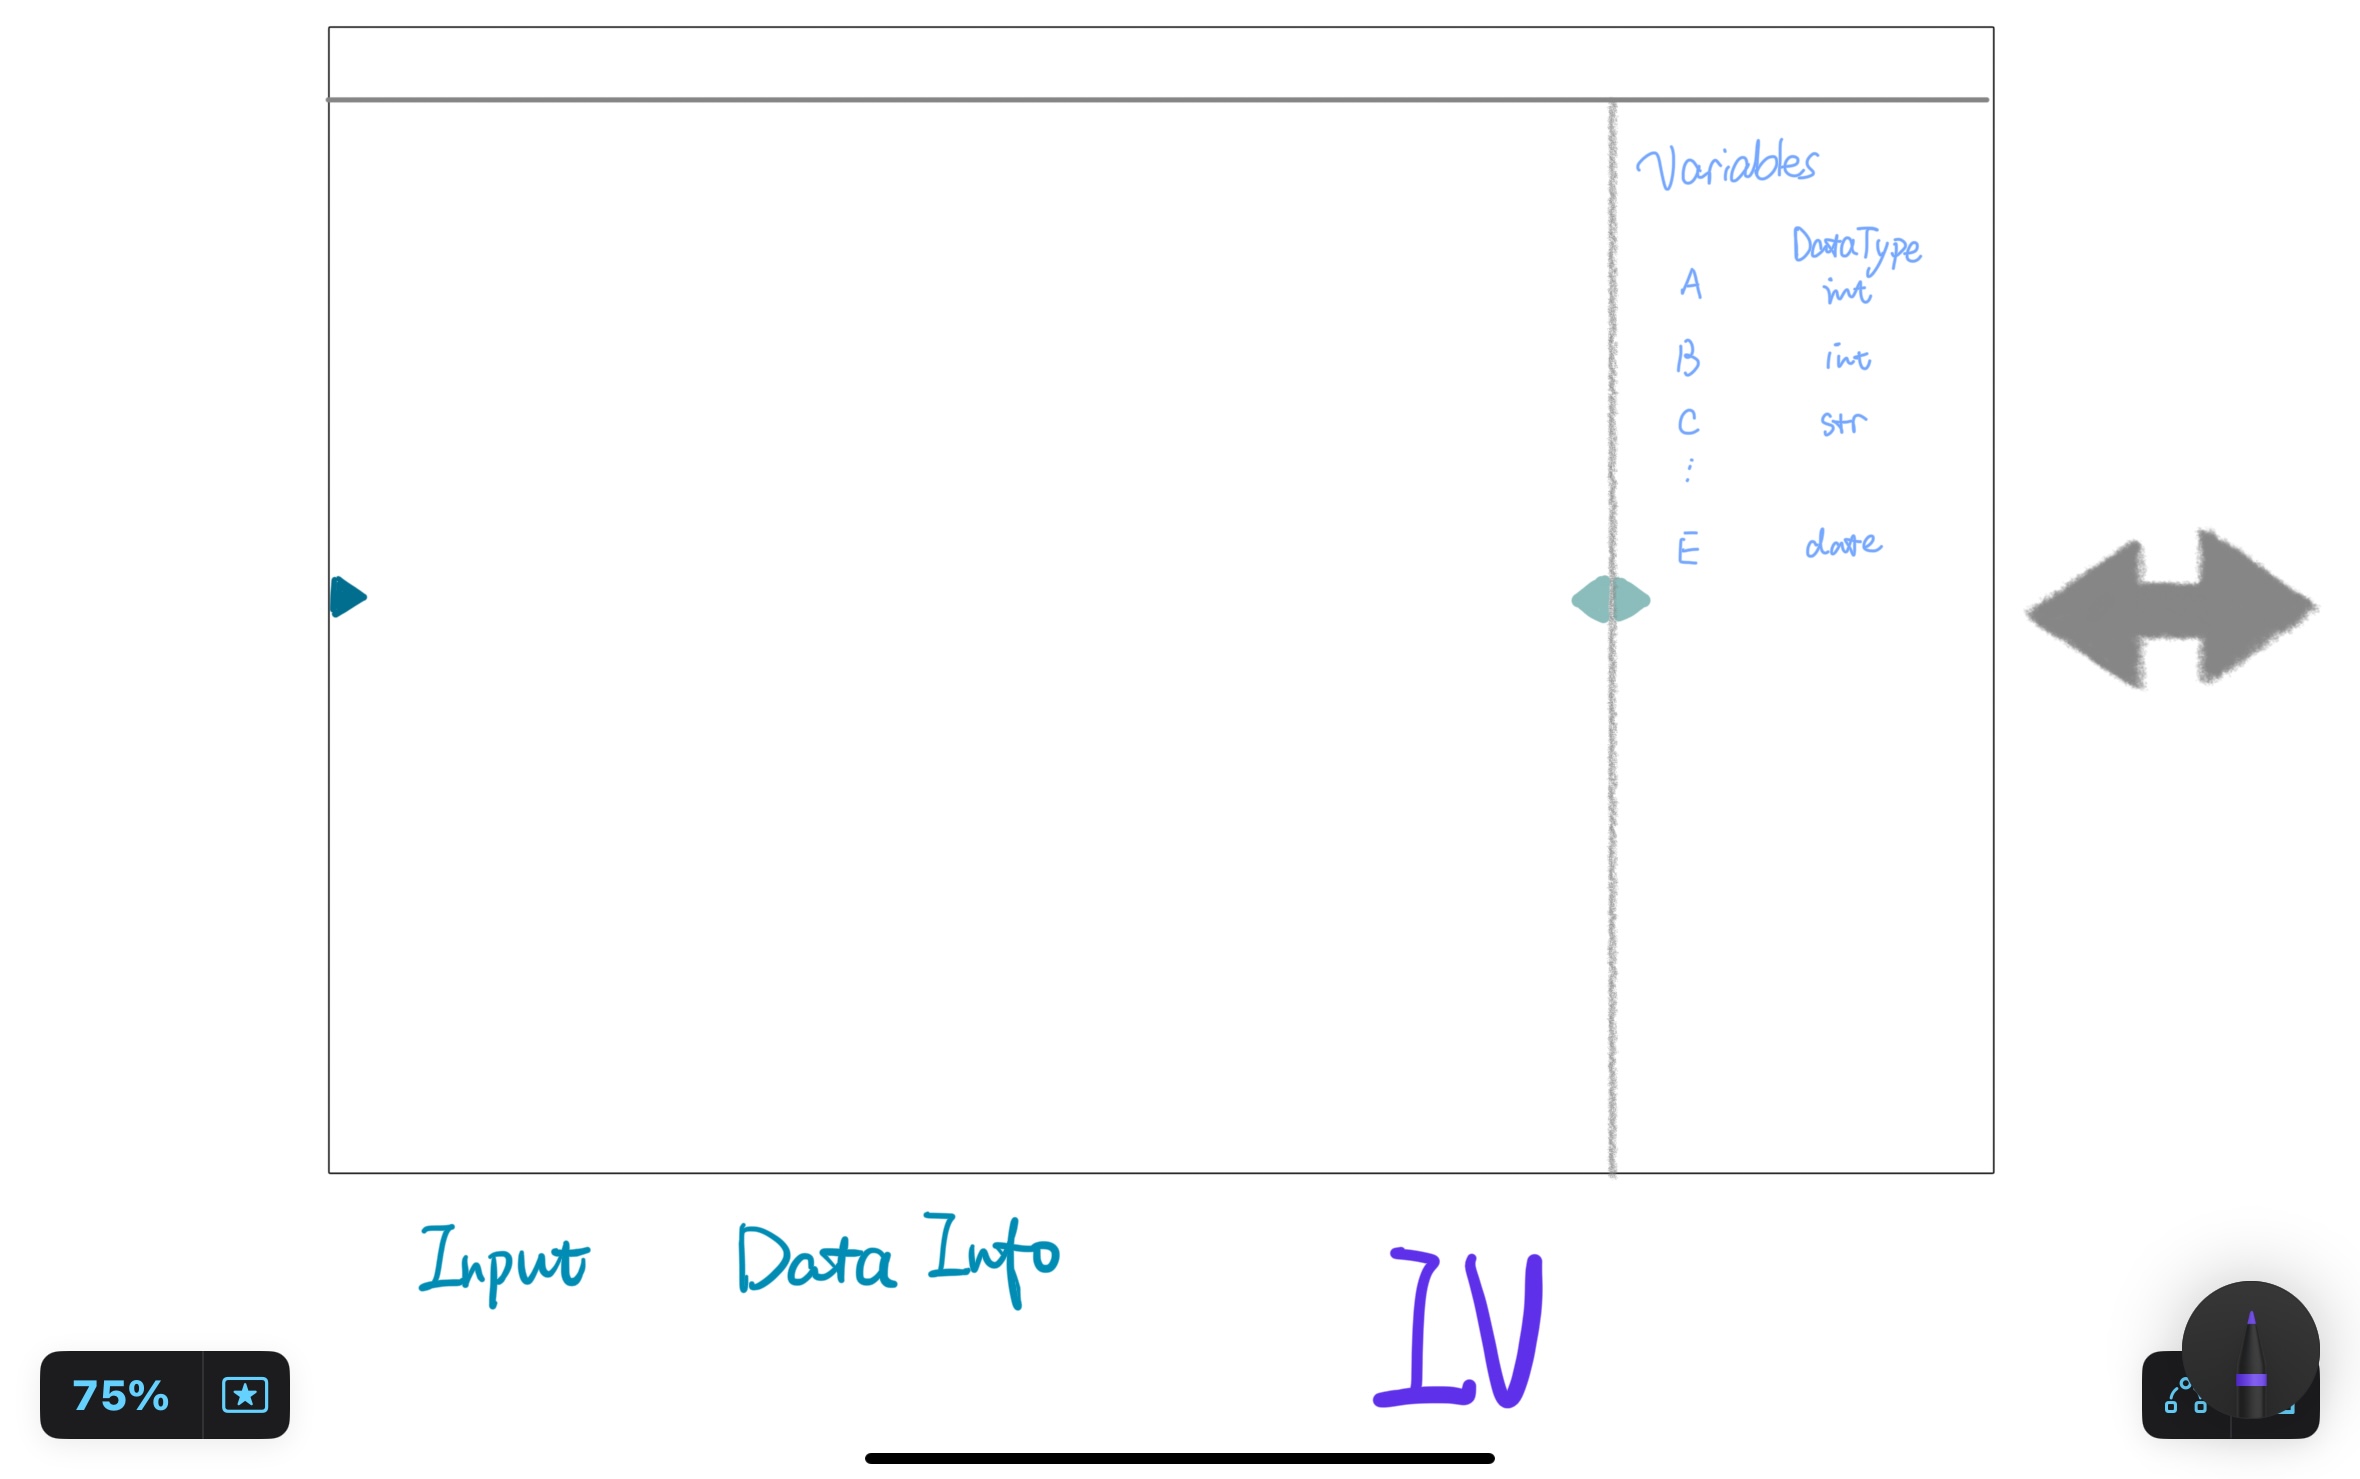 Variables
DataType
A int
B int
C str
⋮
E date
Input Data Info
IV
75%